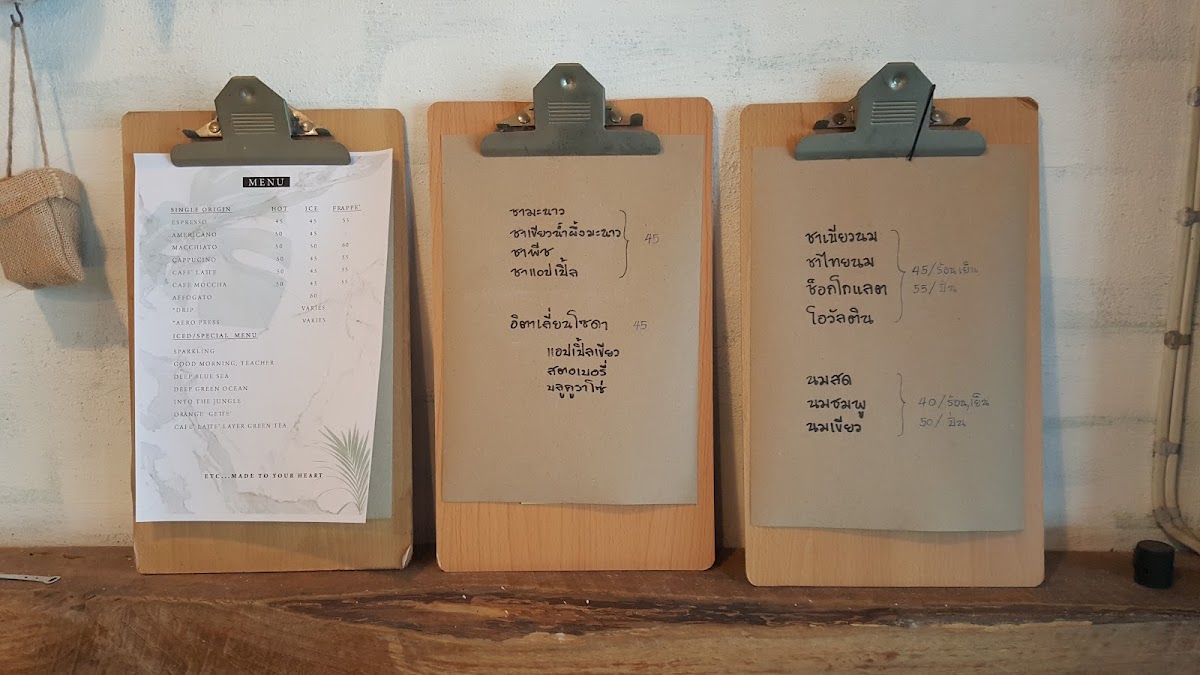 MENU
SINGLE ORIGIN HOT ICE FRAPPE'
ESPRESSO 45 45 55
AMERICANO 50 50 -
MACCHIATO 50 50 60
CAPPUCINO 50 45 55
CAFE' LATTE 50 45 55
CAFE MOCCHA 50 45 55
AFFOGATO 60
*DRIP VARIES
*AERO PRESS VARIES
ICED/SPECIAL MENU
SPARKLING
GOOD MORNING, TEACHER
DEEP BLUE SEA
DEEP GREEN OCEAN
INTO THE JUNGLE
ORANGE
CAFE' LATTE' LAYER GREEN TEA
ETC...MADE TO YOUR HEART
ชามะนาว
ชาเขียวน้ำผึ้งมะนาว
45
ชาพีช
ชาแอปเปิ้ล
อิตาเลี่ยนโซดา 45
แอปเปิ้ลเขียว
สตอเบอรี่
บลูคูวาโซ่
ชาเขียวนม
ชาไทยนม
45/ร้อน,เย็น
ช็อกโกแลต
55/ปั่น
โอวัลติน
นมสด
นมชมพู
40/ร้อน,เย็น
นมเขียว
50/ปั่น